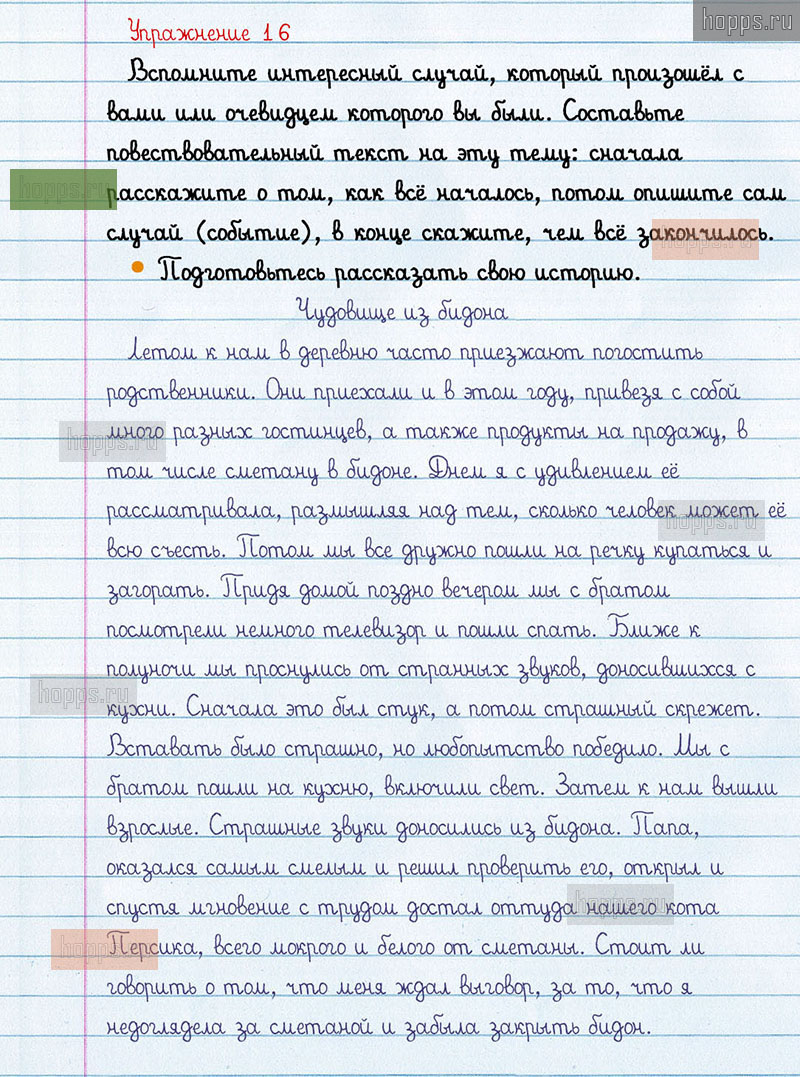 hopps.ru
Упражнение 16
Вспомните интересный случай, который произошёл с
вами или очевидцем которого вы были. Составьте
повествовательный текст на эту тему: сначала
hopps.ru
расскажите о том, как всё началось, потом опишите сам
случай (событие), в конце скажите, чем всё закончилось.
hopps.ru
• Подготовьтесь рассказать свою историю.
Чудовище из бидона
Летом к нам в деревню часто приезжают погостить
родственники. Они приехали и в этом году, привезя с собой
много разных гостинцев, а также продукты на продажу, в
hopps.ru
том числе сметану в бидоне. Днем я с удивлением её
рассматривала, размышляя над тем, сколько человек может её
hopps.ru
всю съесть. Потом мы все дружно пошли на речку купаться и
загорать. Придя домой поздно вечером мы с братом
посмотрели немного телевизор и пошли спать. Ближе к
полуночи мы проснулись от странных звуков, доносившихся с
hopps.ru
кухни. Сначала это был стук, а потом страшный скрежет.
Вставать было страшно, но любопытство победило. Мы с
братом пошли на кухню, включили свет. Затем к нам вышли
взрослые. Страшные звуки доносились из бидона. Папа,
оказался самым смелым и решил проверить его, открыл и
спустя мгновение с трудом достал оттуда нашего кота
hopps.ru
Персика, всего мокрого и белого от сметаны. Стоит ли
hopps.ru
говорить о том, что меня ждал выговор, за то, что я
недоглядела за сметаной и забыла закрыть бидон.